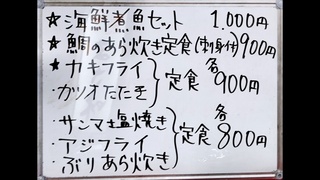 ★海鮮煮魚セット 1.000円
★鯛のあら炊き定食(刺身付)900円
★カキフライ
カツオたたき
定食 各900円
・サンマ塩焼き
・アジフライ
・ぶりあら炊き
定食 各800円